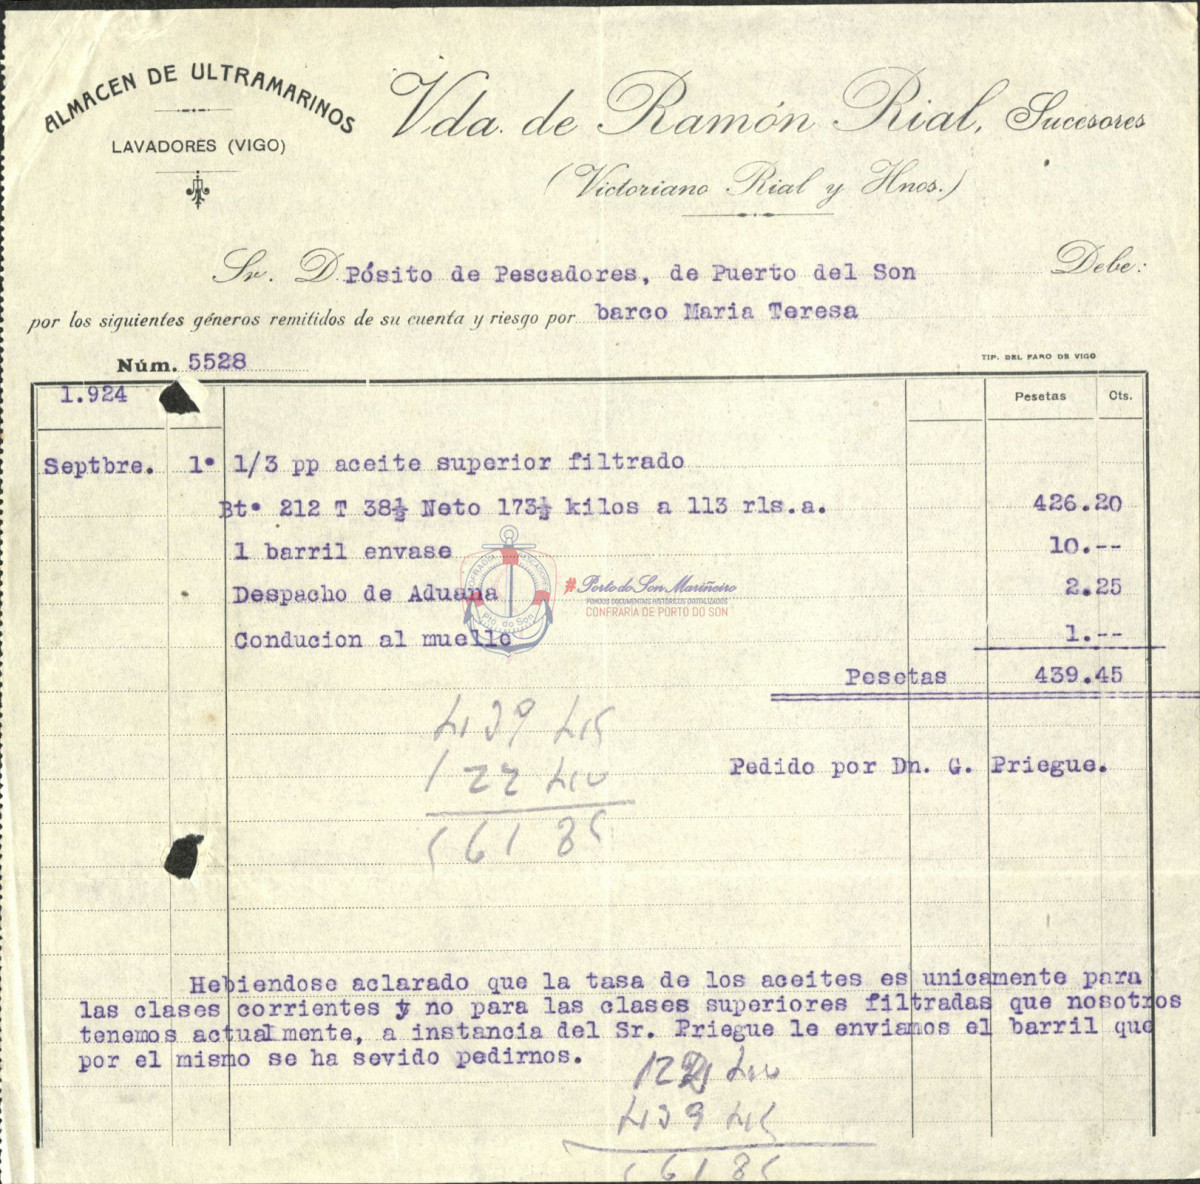 ALMACEN DE ULTRAMARINOS
LAVADORES (VIGO)
Vda. de Ramón Rial, Sucesores
(Victoriano Rial y Hnos.)
Sr. D. Pósito de Pescadores, de Puerto del Son Debe:
por los siguientes géneros remitidos de su cuenta y riesgo por barco Maria Teresa
Núm. 5528
TIP. DEL FARO DE VIGO
1.924 Pesetas Cts.
Septbre. 1º 1/3 pp aceite superior filtrado
Btº 212 T 38½ Neto 173½ kilos a 113 rls.a. 426.20
1 barril envase 10.--
Despacho de Aduana 2.25
Conducion al muelle 1.--
Pesetas 439.45
COFRADIA PESCADORES
Pto. do Son
#Porto do Son Mariñeiro
FONDOS DOCUMENTAIS HISTÓRICOS DIXITALIZADOS
CONFRARÍA DE PORTO DO SON
439 45
122 40
561 85
Pedido por Dn. G. Priegue.
Hebiendose aclarado que la tasa de los aceites es unicamente para
las clases corrientes y no para las clases superiores filtradas que nosotros
tenemos actualmente, a instancia del Sr. Priegue le enviamos el barril que
por el mismo se ha sevido pedirnos.
122 40
439 45
561 85